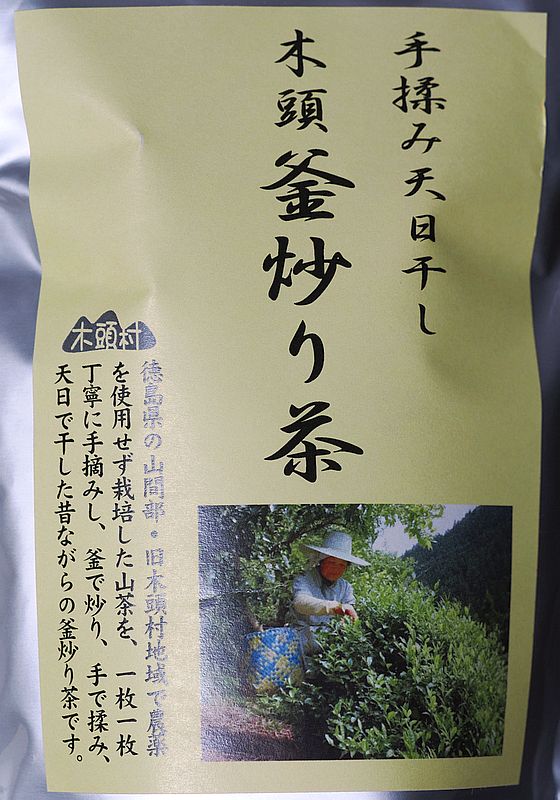 手揉み天日干し
木頭釜炒り茶
木頭村
徳島県の山間部・旧木頭村地域で農薬
を使用せず栽培した山茶を、一枚一枚
丁寧に手摘みし、釜で炒り、手で揉み、
天日で干した昔ながらの釜炒り茶です。